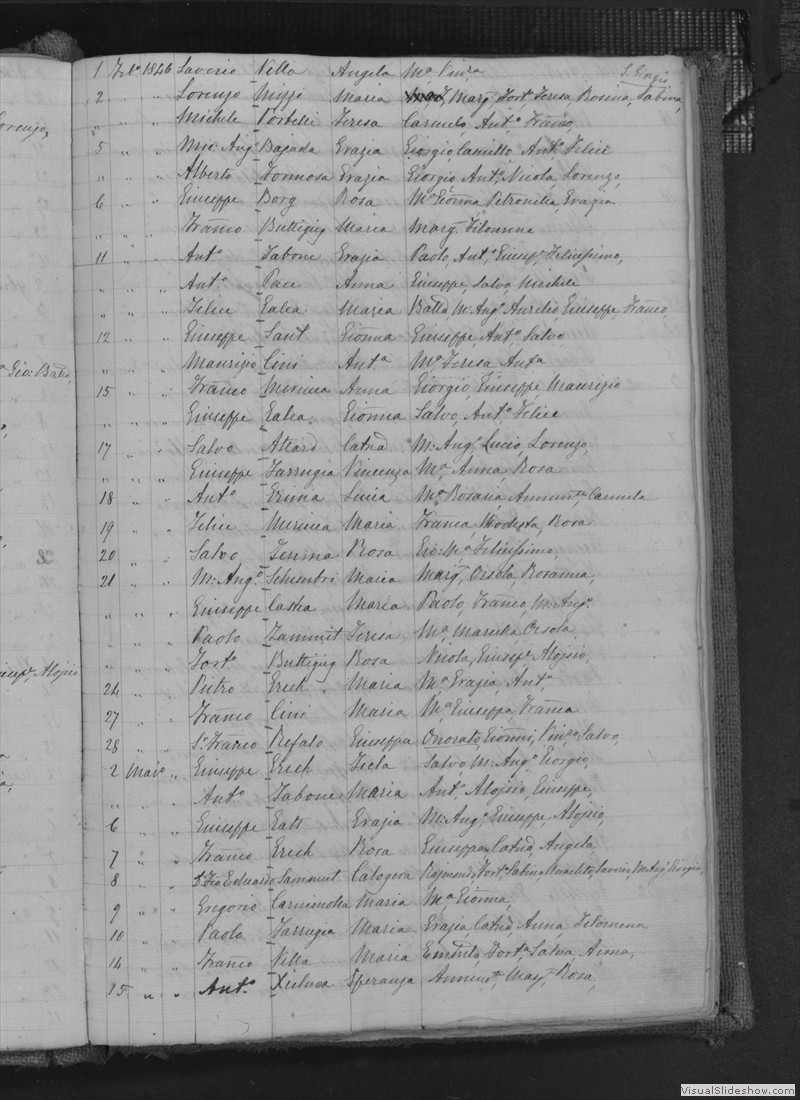 1 Feb.º 1846 Saverio Vella Angela Mª Vinz.a
S. Giorgio
2 " " Lorenzo Mizzi Maria Marg, Fort, Teresa Rosina, Sabina,
" " " Michele Portelli Teresa Carmelo Ant.º Franco,
5 " " Ang.º Bajada Grazia Giorgio, Camillo, Ant.º Felice
" " " Alberto Formosa Grazia Giorgio, Ant.º, Nicola, Lorenzo,
6 " " Giuseppe Borg Rosa Mª Gionna Petronilla, Grazia
" " " Franco Buttigieg Maria Marg. Filomena
11 " " Antº Tabone Grazia Paolo, Ant.º Giusep.e Felicissimo,
" " " Ant.º Pace Anna Giuseppe, Salvo, Michele
" " " Felice Galea Maria Batta M: Ang.º Aurelio, Giuseppe, Franco,
12 " " Giuseppe Sant Gionna Giuseppe, Ant.º Salvo
" " " Maurizio Cini Antª Mª Teresa Antª
15 " " Franco Anna Giorgio, Giuseppe, Maurizio
" " " Giuseppe Galea Gionna Salvo, Ant.º Felice
17 " " Salvo Attard Catna M: Ang.º Lucio, Lorenzo,
" " " Giuseppe Farrugia Vincenza Mª Anna, Rosa
18 " " Antº Grima Lucia Mª Rosaria, Carmela
19 " " Felice Maria Franca, Modesta, Rosa
20 " " Salvo Rosa Gio: Mª Felicissimo,
21 " " M: Ang.º Schembri Maria Marg, Orsola, Rosanna,
" " " Giuseppe Maria Paolo, Franco, M: Ang.º
" " " Paolo Zammit Teresa Mª Orsola
" " " Fortº Buttigieg Rosa Nicola, Giusep.e Aloisio,
24 " " Pietro Grech Maria Mª Grazia, Antª
27 " " Franco Cini Maria Mª Giuseppa, Franca
28 " " Sr Franco Refalo Giuseppa Onorato, Gionni, Vin.o Salvo,
2 Marzº " Giuseppe Grech Tecla Salvo, M: Ang.º Giorgio,
" " " Antº Tabone Maria Ant.º Aloisio, Giuseppe,
6 " " Giuseppe Gatt Grazia M: Ang.º Giuseppe, Aloisio,
7 " " Franco Grech Rosa Giuseppa, Catna, Angela
8 " " Eduardo Sammut Calogera Fort.º Sabina, Saverio, M: Ang.º Giorgio,
9 " " Gregorio Maria Mª Gionna,
10 " " Paolo Farrugia Maria Grazia, Catna, Anna Filomena
14 " " Franco Vella Maria Fort.a Salva, Anna,
15 " " Ant.º Xicluna Speranza Annun.ta Marg, Rosa,
Lorenzo,
Gio: Batta
Giusep.e Aloisio
VisualSlideshow.com